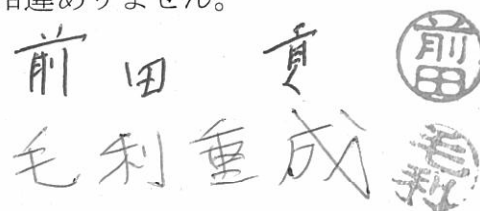 相違ありません。
前田 貢 前田
毛利重成 毛利